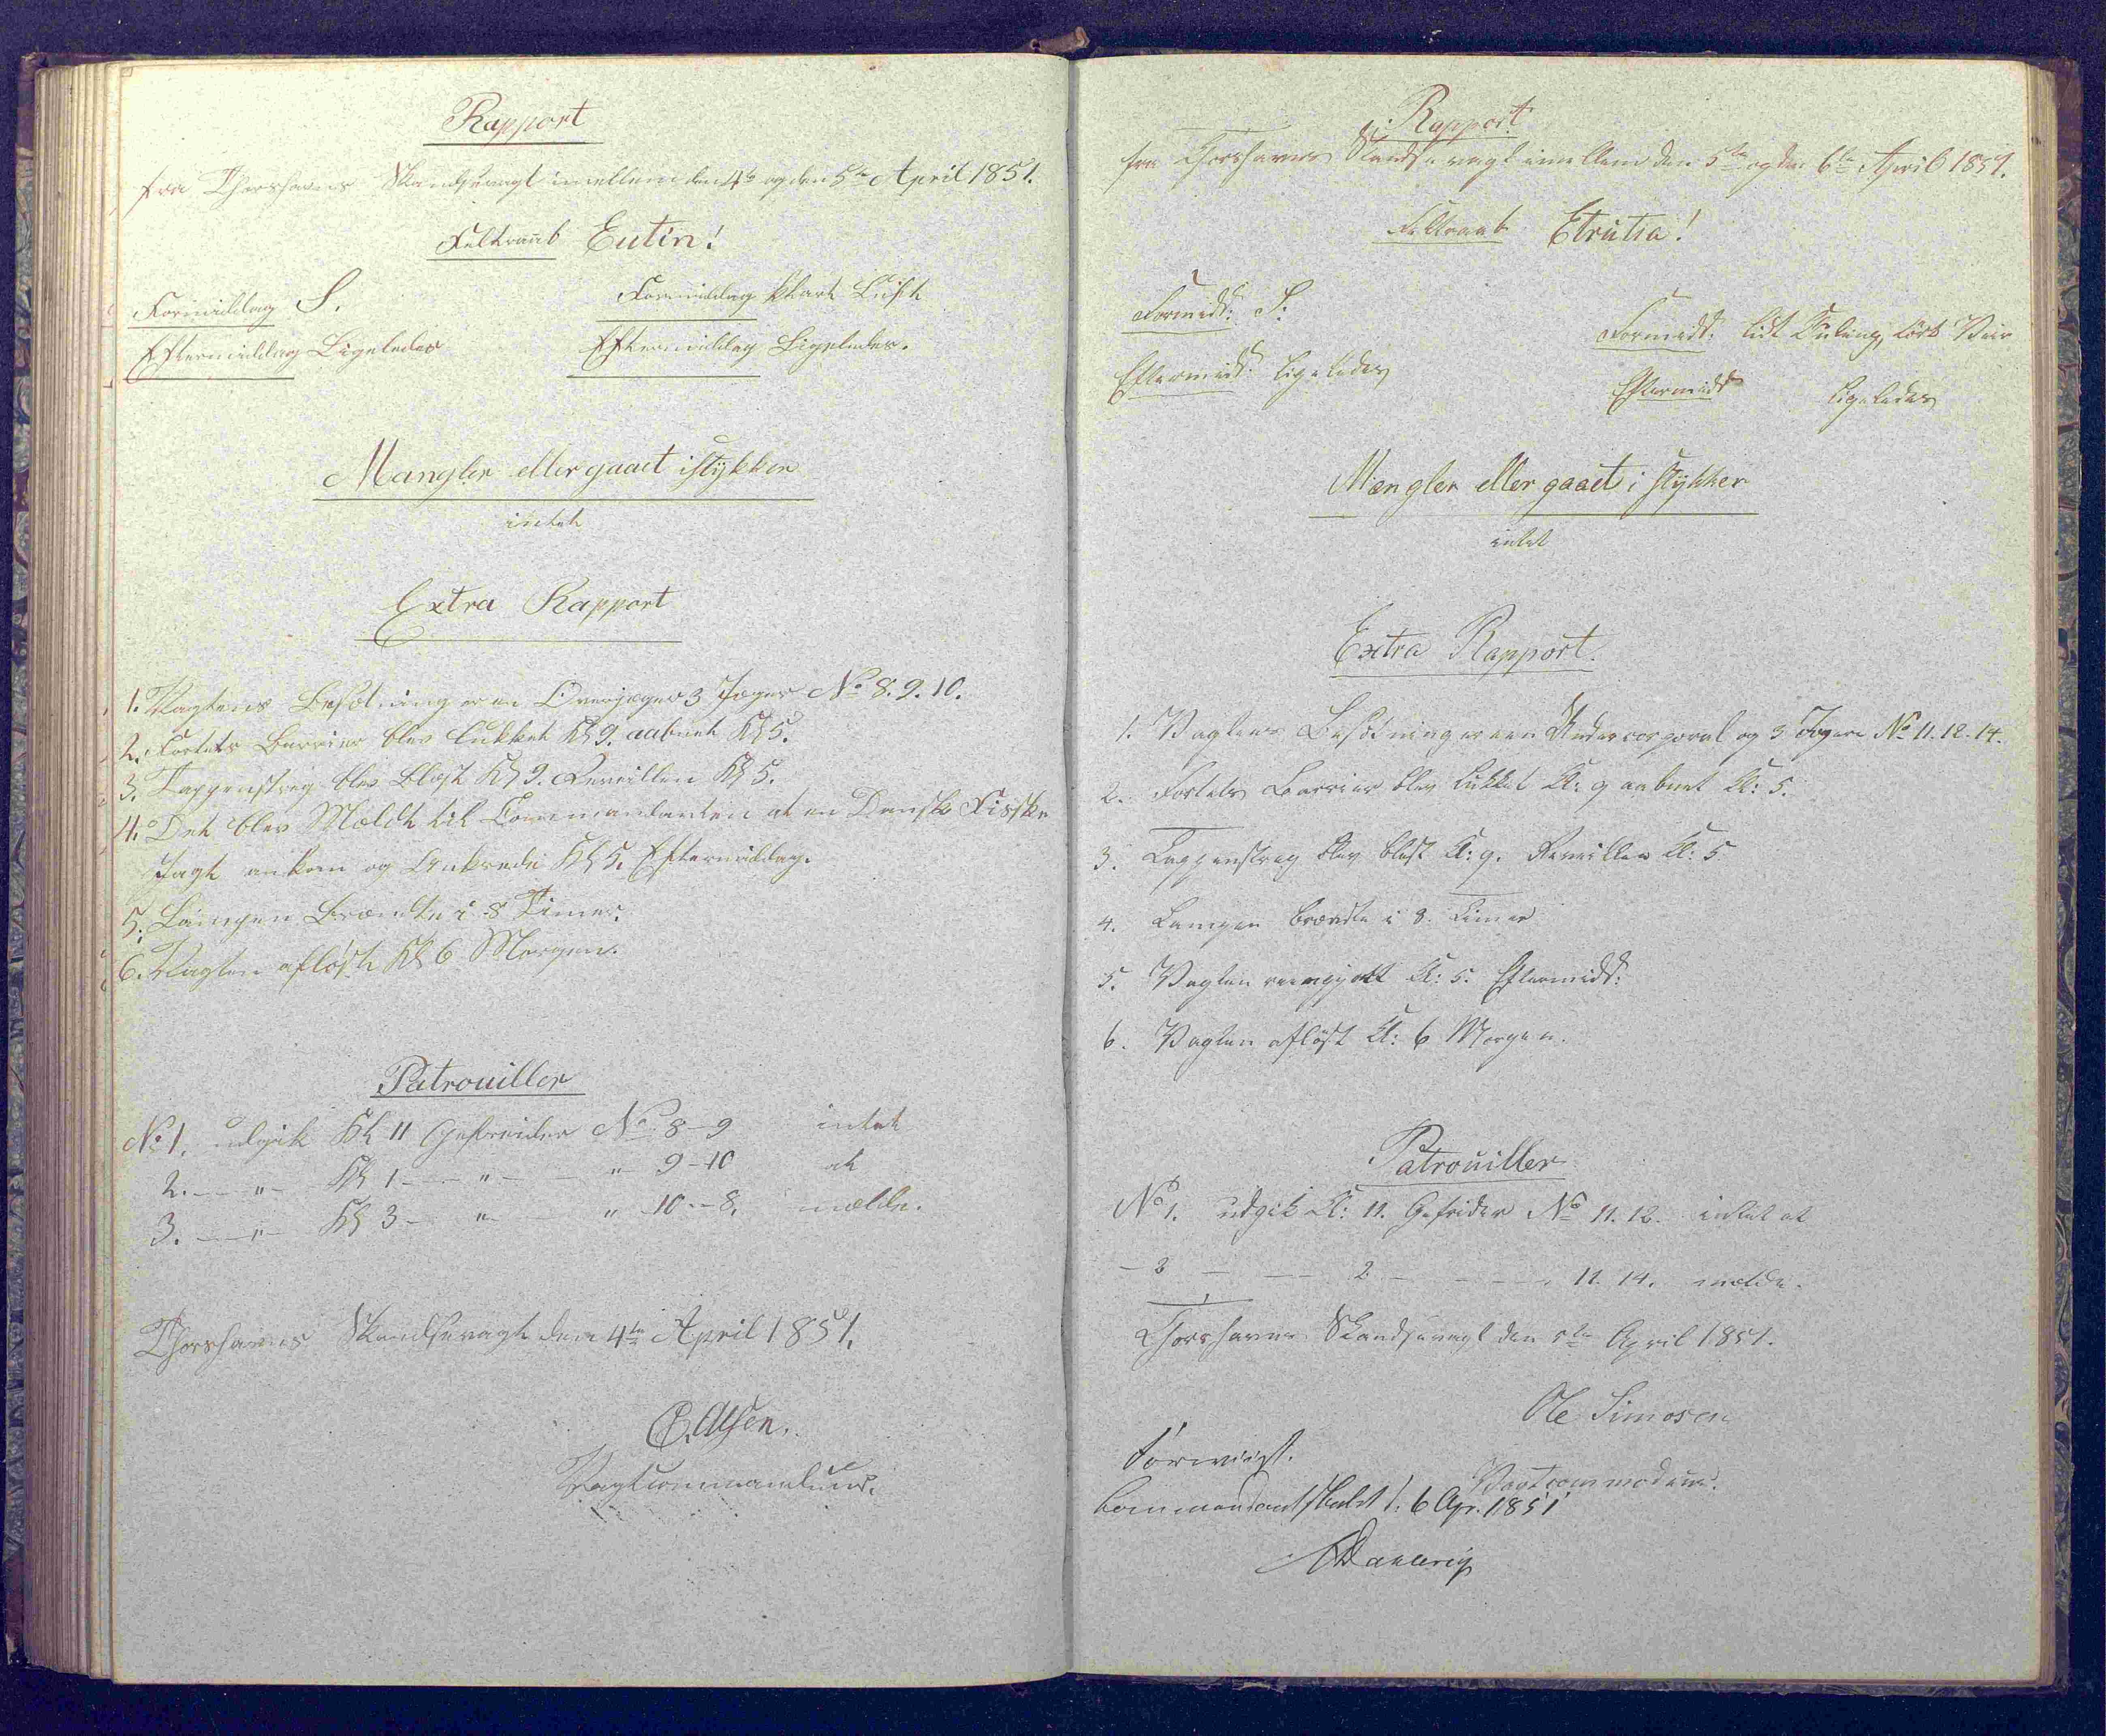 Rapport
fra Thorshavns Skandsevagt imellem den 4de og den 5te April 1851.
Feltraab Eutin!
Formiddag S.
Formiddag klart Luft
Eftermiddag Ligeledes
Eftermiddag Ligeledes.
Mangler eller gaaet istykker
intet
Extra Rapport
1. Vagtens Besætning er en Overjæger 3 Jæger No 8. 9. 10.
2. Fortets Barrier blev lukket Kl 9. aabnet Kl 5.
3. Tappenstreg blev blæst Kl 9. Reveillen Kl 5.
4. Det blev Mældt til Commandanten at en Dansk Fisske
Jagt ankom og Ankrede Kl 5. Eftermiddag.
5. Lampen Brændte i 8 Timer.
6. Vagten afløste Kl 6 Morgen.
Patrouiller
No 1. udgik Kl 11 Gefreider No 8-9 intet
2. — " — Kl 1 — " — " 9-10 at
3. — " — Kl 3 — " — " 10-8. mælde.
Thorshavns Skandsevagt den 4de April 1851.
Olsen.
Vagtcommandeur.
Rapport
fra Thorshavns Skandsevagt imellem den 5te og den 6te April 1851.
Feltraab Etruria!
Formidd: S.
Formidd: lidt Kuling, tört Veir
Eftermidd: ligeledes
Eftermidd ligeledes
Mangler eller gaaet i stykker
intet
Extra Rapport.
1. Vagtens Besætning er een Undercorporal og 3 Jægere No 11. 12. 14.
2. Fortets Barrier blev lukket Kl: 9 aabnet Kl: 5.
3. Tappenstreg blev blæst Kl: 9. Reveillen Kl: 5
4. Lampen brændte i 8 Timer
5. Vagten reengjort Kl: 5. Eftermidd:
6. Vagten afløst Kl: 6 Morgen.
Patrouiller
No 1. udgik Kl: 11. Gefrider No 11. 12. intet at
— 2 — — 2 — — — 11. 14. mælde.
Thorshavns Skandsevagt den 5te April 1851.
Ole Simosen
Forevist.
Vagtcommodeur.
Commandantskabet d. 6 Apr. 1851